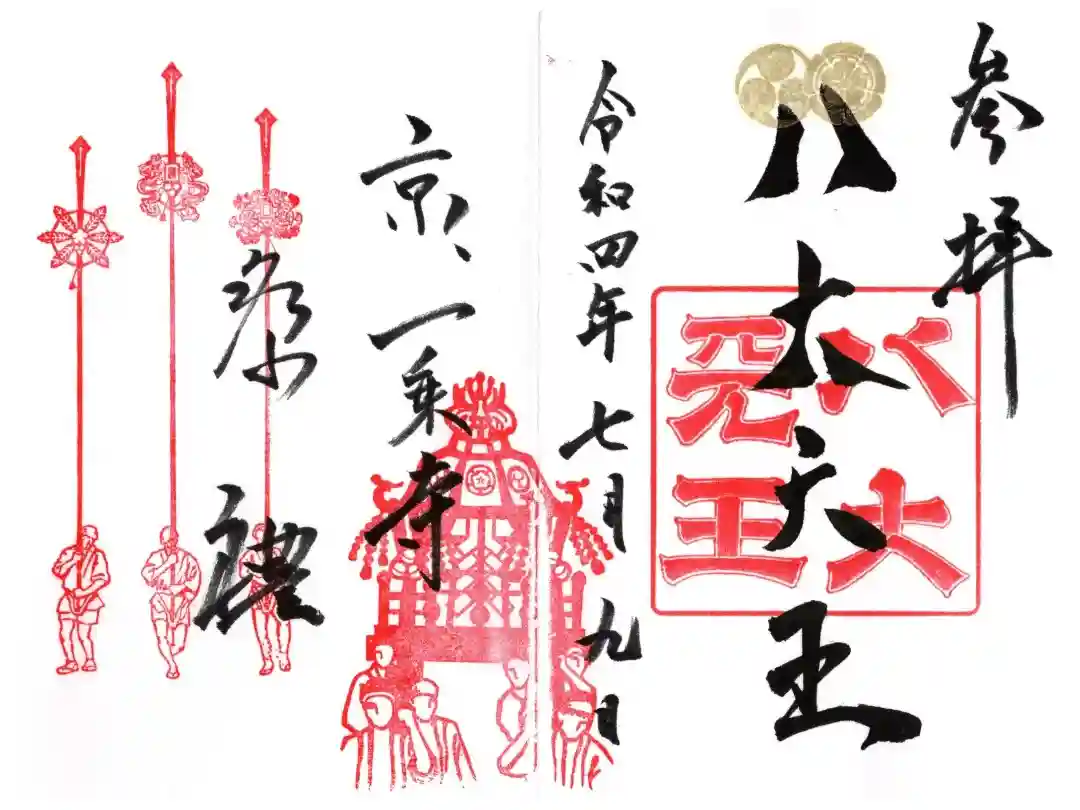 参拝
八大天王
八大
天王
令和四年七月九日
京、一乗寺
祭禮